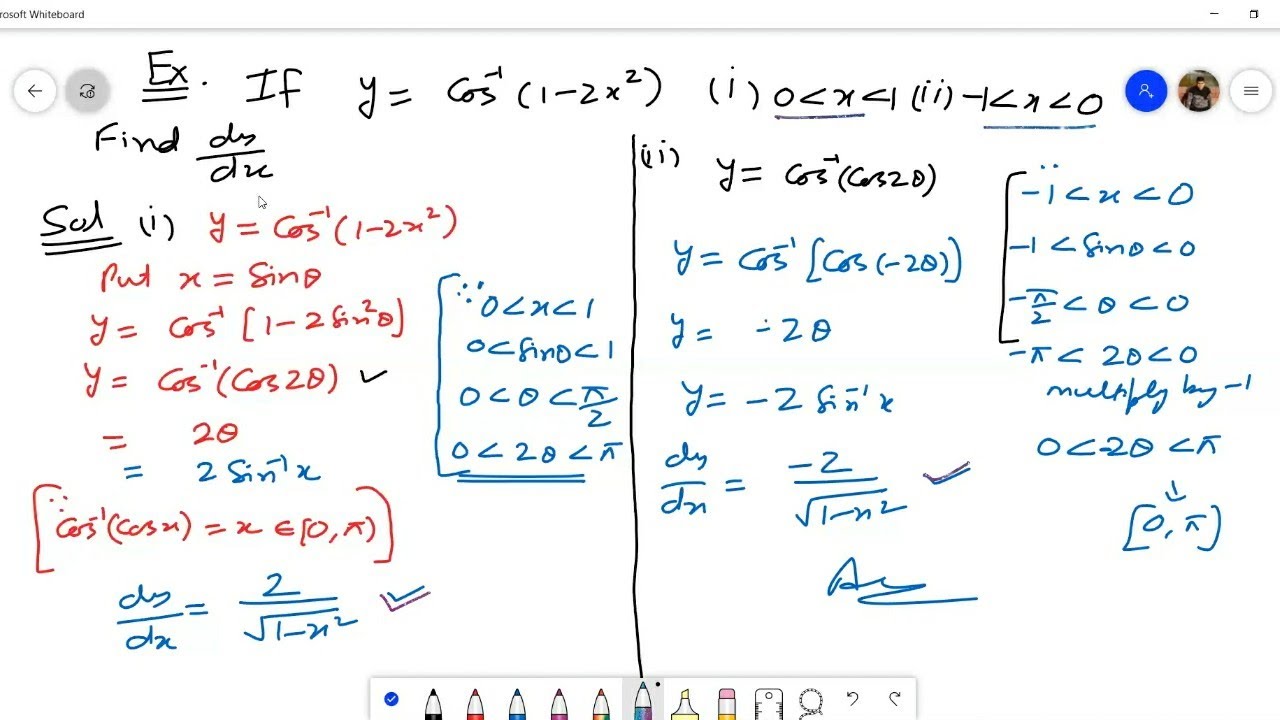 rosoft Whiteboard
Ex. If y = Cos⁻¹(1-2x²) (i) 0<x<1 (ii) -1<x<0
Find dy/dx
Sol (i) y = Cos⁻¹(1-2x²)
Put x = Sinθ
y = Cos⁻¹[1-2Sin²θ]
y = Cos⁻¹(Cos2θ) ✓
= 2θ
= 2Sin⁻¹x
[∵ Cos⁻¹(Cosx) = x ∈ [0,π)]
dy/dx = 2/√1-x² ✓
[∵ 0<x<1
0<Sinθ<1
0<θ<π/2
0<2θ<π
(ii) y = Cos⁻¹(Cos2θ)
y = Cos⁻¹[Cos(-2θ)]
y = -2θ
y = -2Sin⁻¹x
dy/dx = -2/√1-x² ✓
-1<x<0
-1<Sinθ<0
-π/2<θ<0
-π<2θ<0
multiply by -1
0<-2θ<π
↓
[0,π]